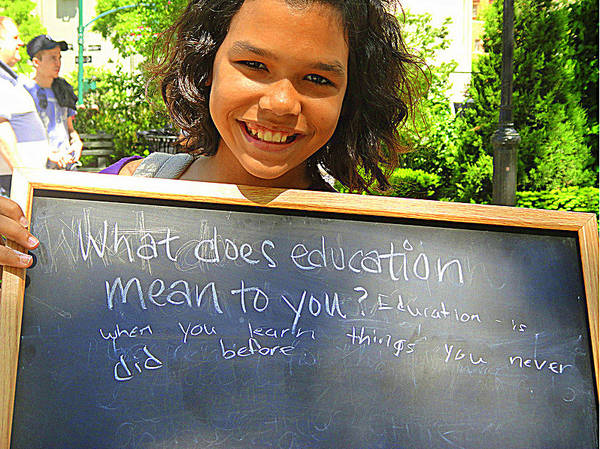 What does education
mean to you? Education - is
when you learn things you never
did before